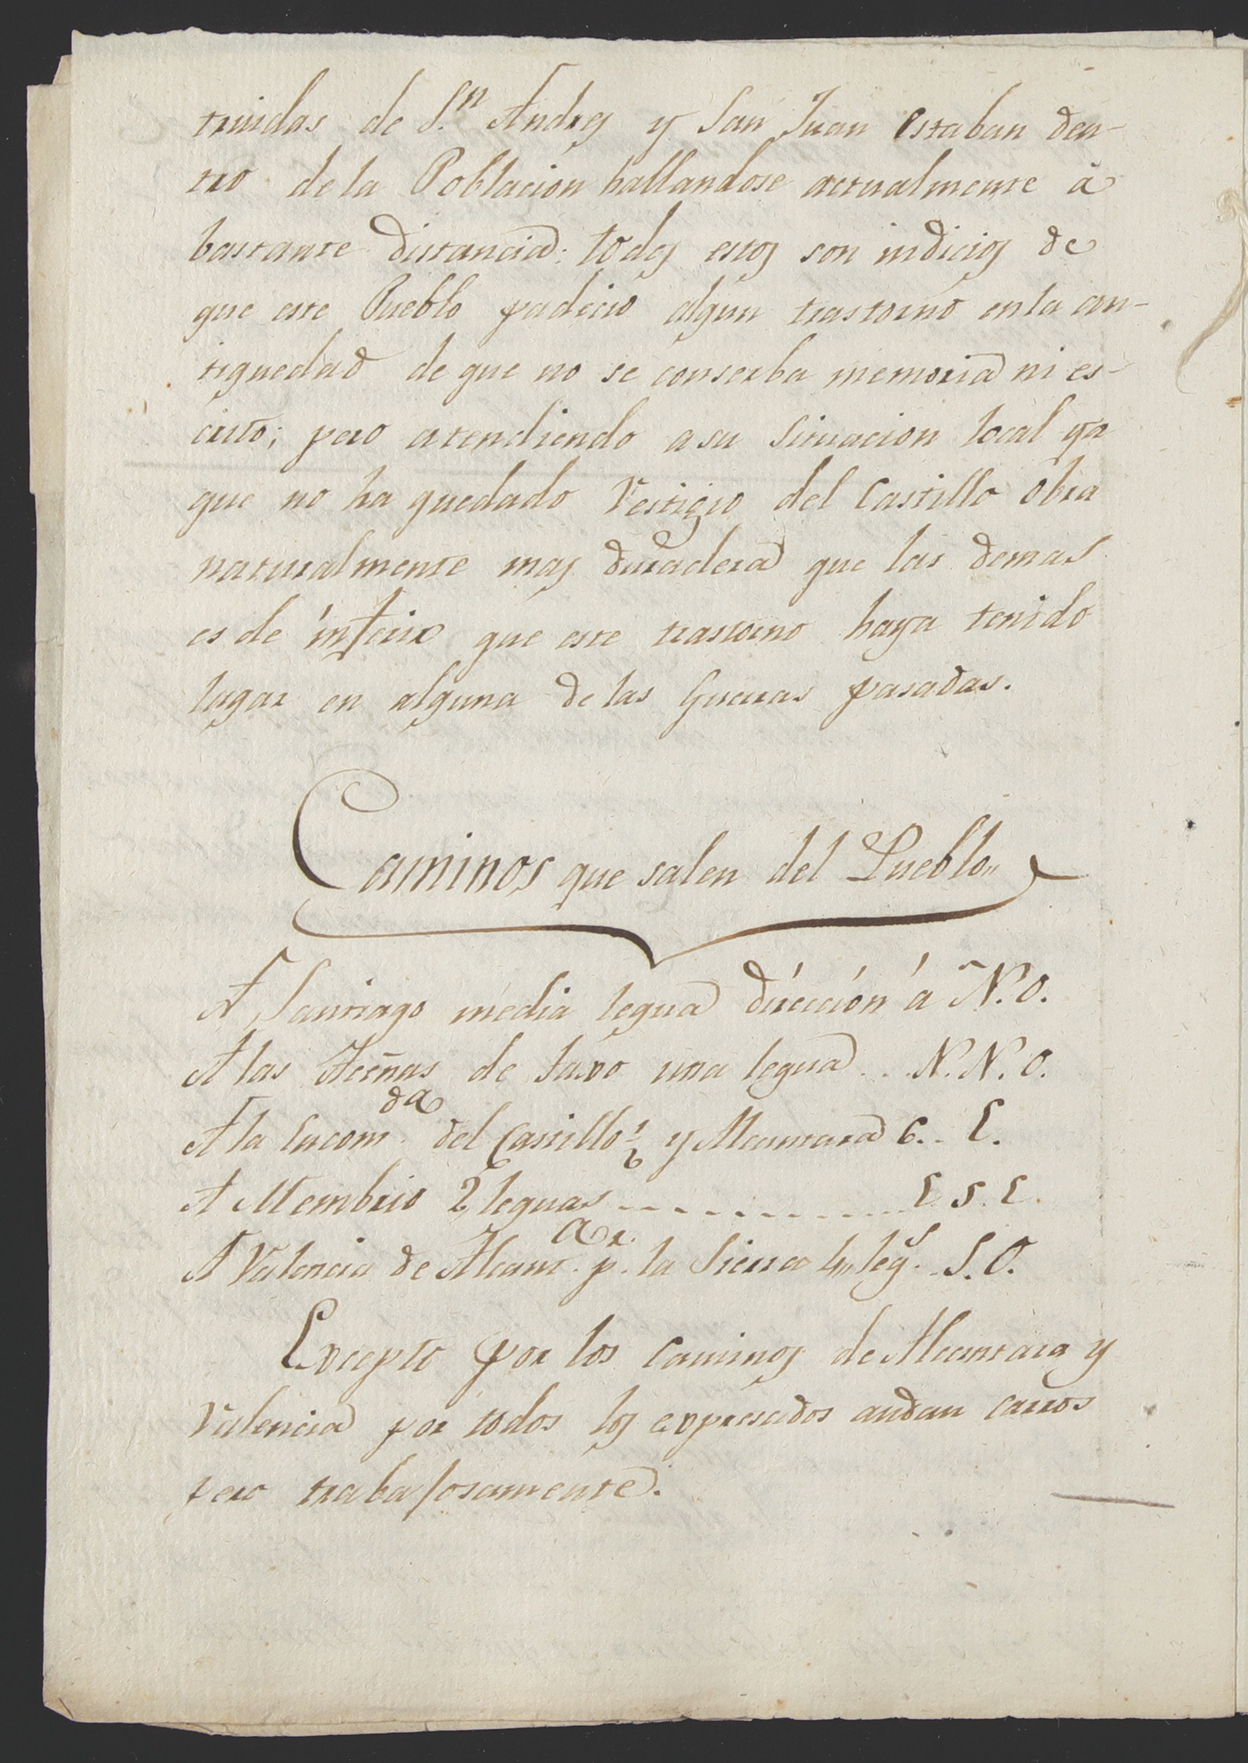 truidas de S.ⁿ Andres y San Juan estaban den-
tro de la Poblacion hallandose actualmente á
bastante distancia: todos estos son indicios de
que este Pueblo padecio algun trastorno en la an-
tiguedad de que no se conserba memoria ni es-
crito; pero atendiendo a su Situacion local ya
que no ha quedado Vestigio del Castillo obra
naturalmente mas duradera que las demas
es de inferir que este trastorno haya tenido
lugar en alguna de las Guerras pasadas.
Caminos que salen del Pueblo,,
A Santiago media legua dirección á N.O.
A las Herrⁿas de Jaxo una legua .. N.N.O.
A la Encom.da del Castillo ½ y Alcantara 6.. E.
A Membrio 2 leguas ............ E.S.E.
A Valencia de Alcant.ª p.r la Sierra 4,, leg.s S.O.
Excepto por los caminos de Alcantara y
Valencia por todos los expresados andan carros
pero trabajosamente.